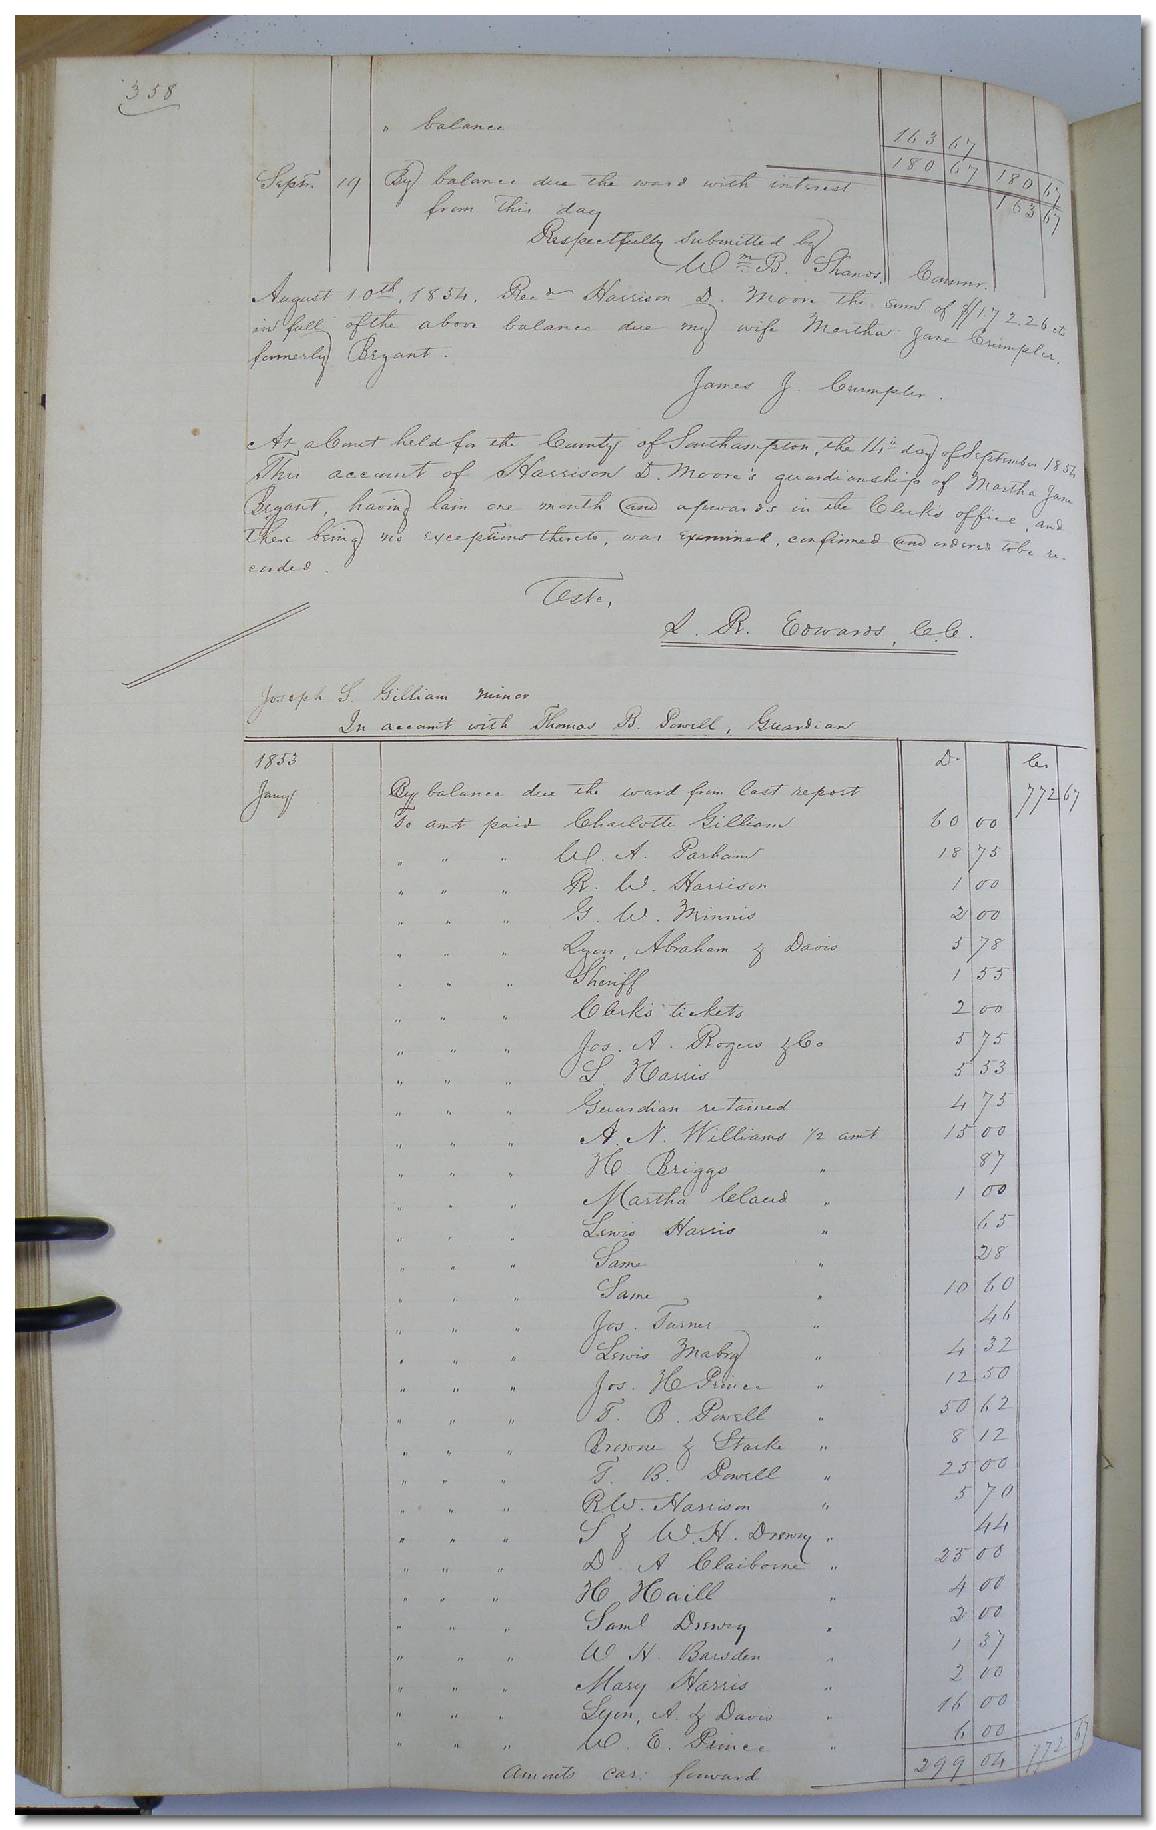 358
" balance 163 67
180 67 180 67
Septr. 19 By balance due the ward with interest 163 67
from this day
Respectfully submitted by
Wm B. Shands, Commr.
August 10th, 1854. Recd Harrison D. Moore the sum of $172.26 ct
in full of the above balance due my wife Martha Jane Crumpler,
formerly Bryant.
James J. Crumpler.
At a Court held for the County of Southampton, the 18th day of September 1854
This account of Harrison D. Moore's guardianship of Martha Jane
Bryant, having lain one month and upwards in the Clerk's office, and
there being no exceptions thereto, was examined, confirmed and ordered to be re-
corded.
Teste,
L. R. Edwards, C.C.
Joseph S. Gilliam minor
In account with Thomas B. Powell, Guardian
1853 Dr Cr
Jany By balance due the ward from last report 772 67
To amt paid Charlotte Gilliam 60 00
" " " W. A. Parham 18 75
" " " R. W. Harrison 1 00
" " " G. W. Minnis 2 00
" " " Lyon, Abraham & Davis 5 78
" " " Sheriff 1 55
" " " Clerk's tickets 2 00
" " " Jos. A. Rogers & Co 5 75
" " " L. Harris 5 53
" " " Guardian retained 4 75
" " " A. N. Williams 1/2 amt 15 00
" " " H Briggs " 87
" " " Martha Claud " 1 00
" " " Lewis Harris " 65
" " " Same " 28
" " " Same " 10 60
" " " Jos. Turner " 46
" " " Lewis Mabry " 4 32
" " " Jos. H Prince " 12 50
" " " T. B. Powell " 50 62
" " " Browne & Starke " 8 12
" " " T. B. Powell " 25 00
" " " R W. Harrison " 5 70
" " " S & W. H. Drewry " 44
" " " D. A Claiborne " 25 00
" " " H Haill " 4 00
" " " Saml Drewry " 2 00
" " " W H. Barsden " 1 37
" " " Mary Harris " 2 00
" " " Lyon, A. & Davis " 16 00
" " " W. E. Prince " 6 00
Amounts car: forward 299 04 772 67